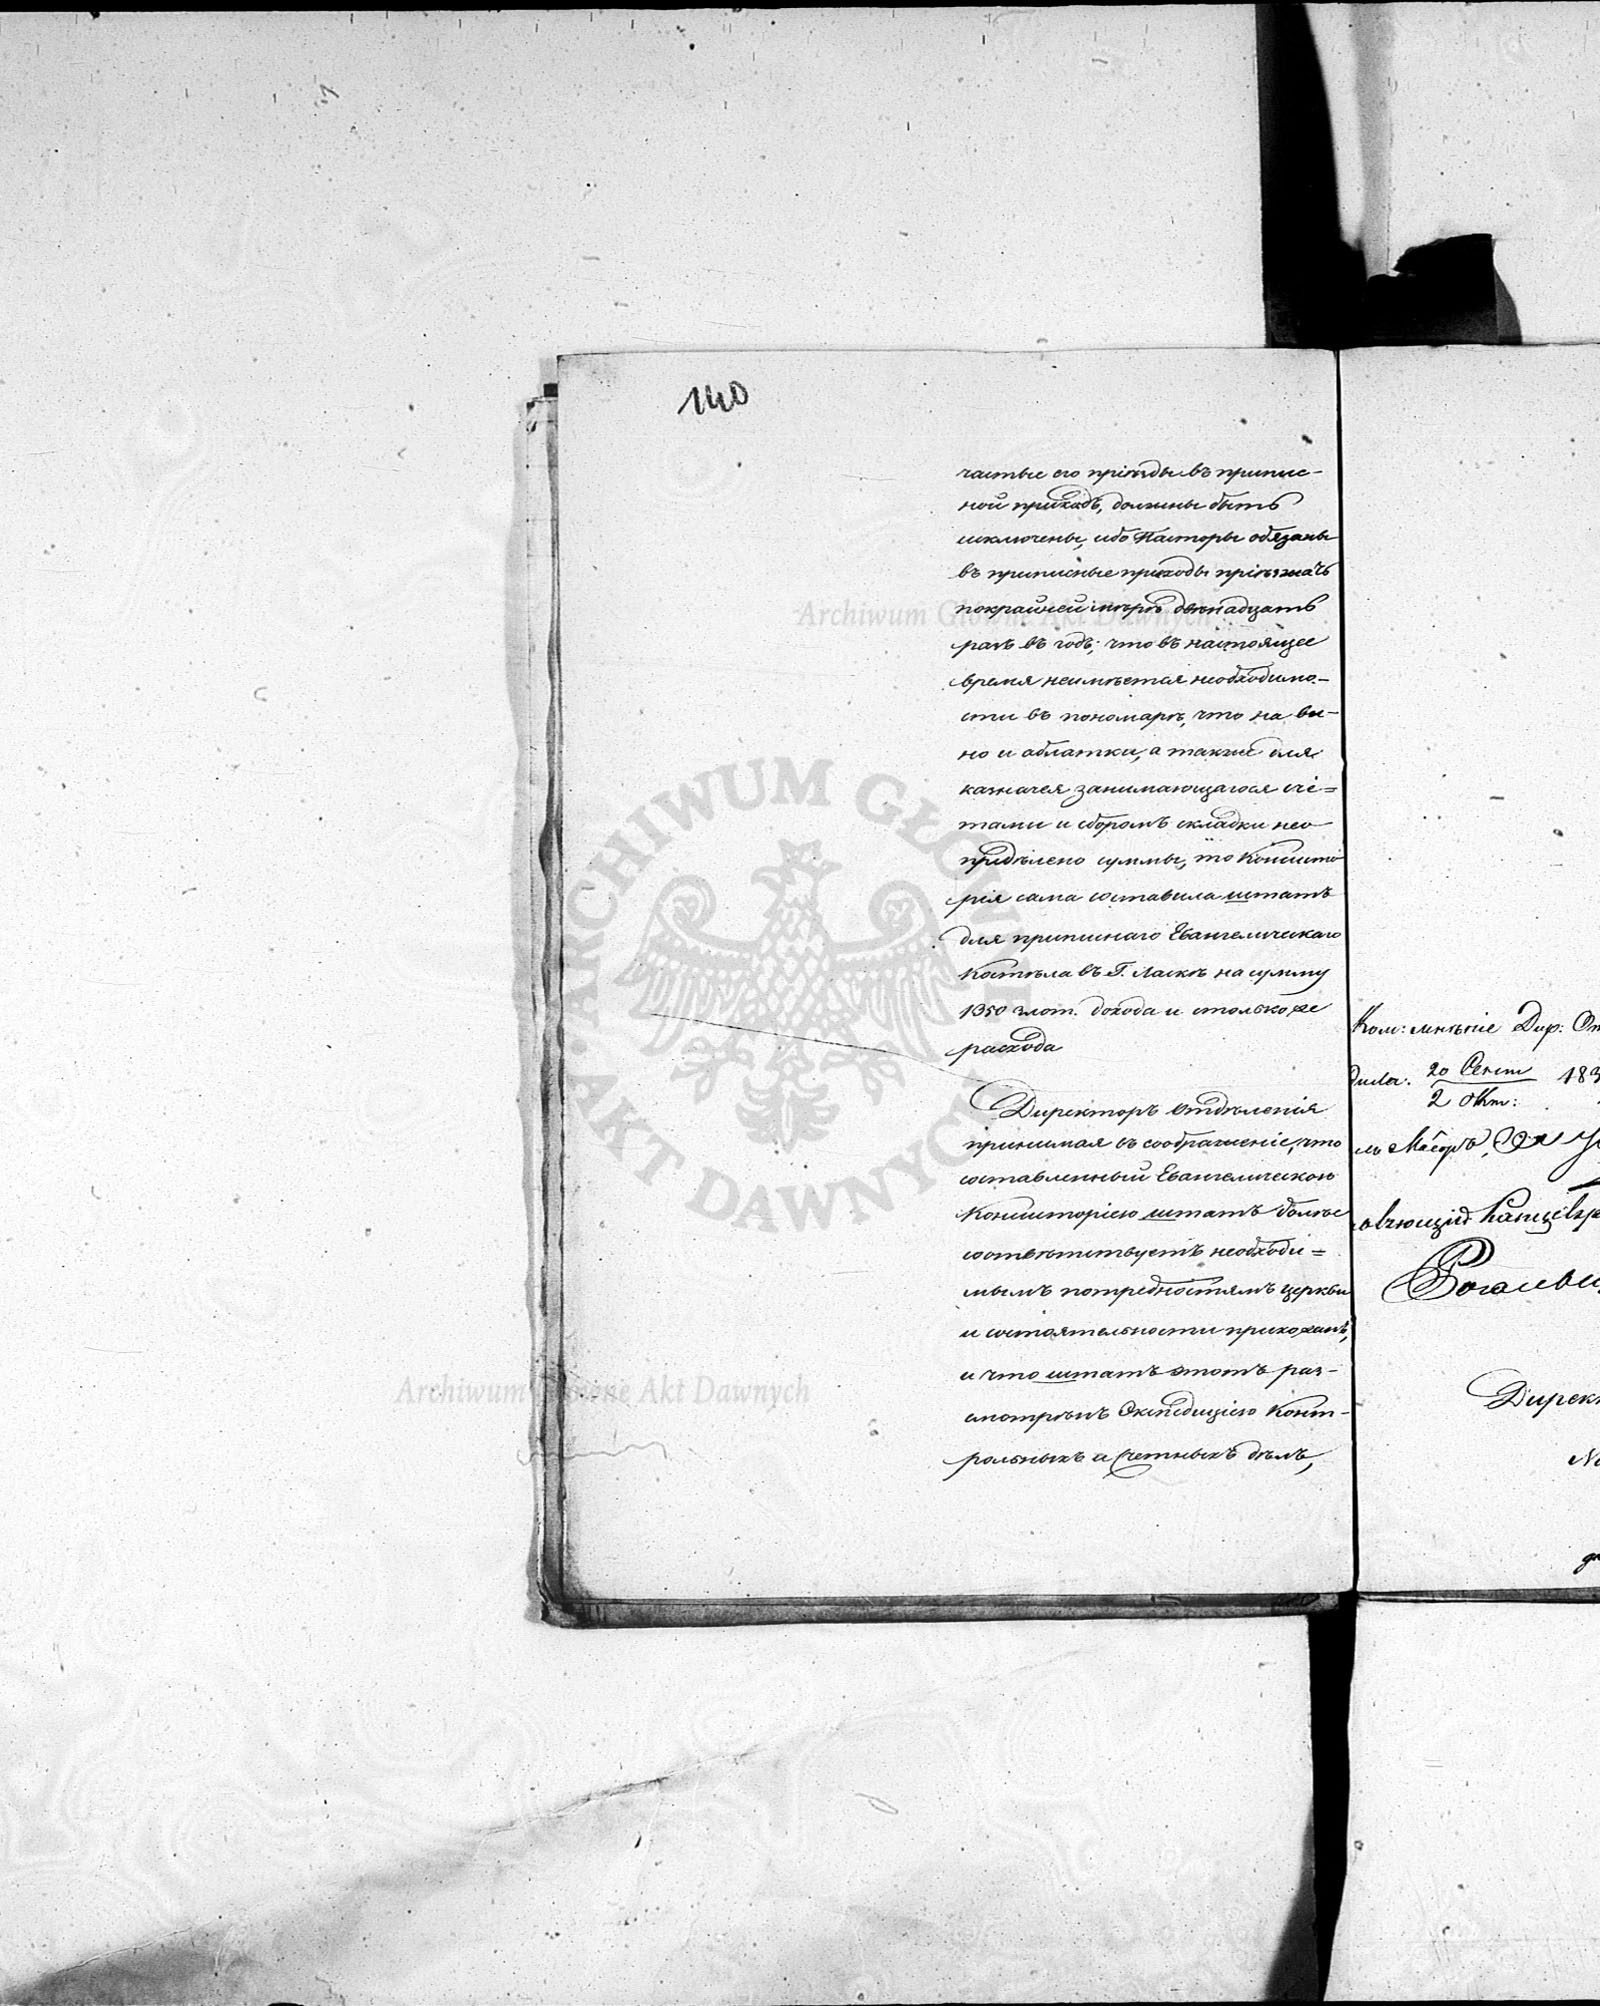 140
частые его пріѣзды въ припис-
ной приходъ, должны быть
исключены, ибо Пасторы обязаны
въ приписные приходы пріѣзжать
покрайней мѣрѣ двѣнадцать
разъ въ годъ; что въ настоящее
время неимѣется необходимо-
сти въ пономарѣ, что на ви-
но и облатки, а также для
казначея занимающагося счё=
тами и сборомъ складки нео-
предѣлено суммы, то Консисто
рія сама составила штатъ
для приписнаго Евангелическаго
Костѣла въ Г. Ласкѣ на сумму
1350 злот. дохода и столькоже
расхода
Директоръ Отдѣленія
принимая въ соображеніе, что
составленный Евангелическою
Консисторіею штатъ болѣе
соотвѣтствуетъ необходи=
мымъ потребностямъ церкви
и состоятельности прихожанъ,
и что штатъ этотъ раз-
смотрѣнъ Экспедиціею Конт-
рольныхъ и Счетныхъ дѣлъ,
Ком: мнѣніе Дир: От
20 Сент 183
2 Окт:
Маіоръ,
Директ
Archiwum Główne Akt Dawnych
Archiwum Główne Akt Dawnych
ARCHIWUM GŁÓWNE AKT DAWNYCH